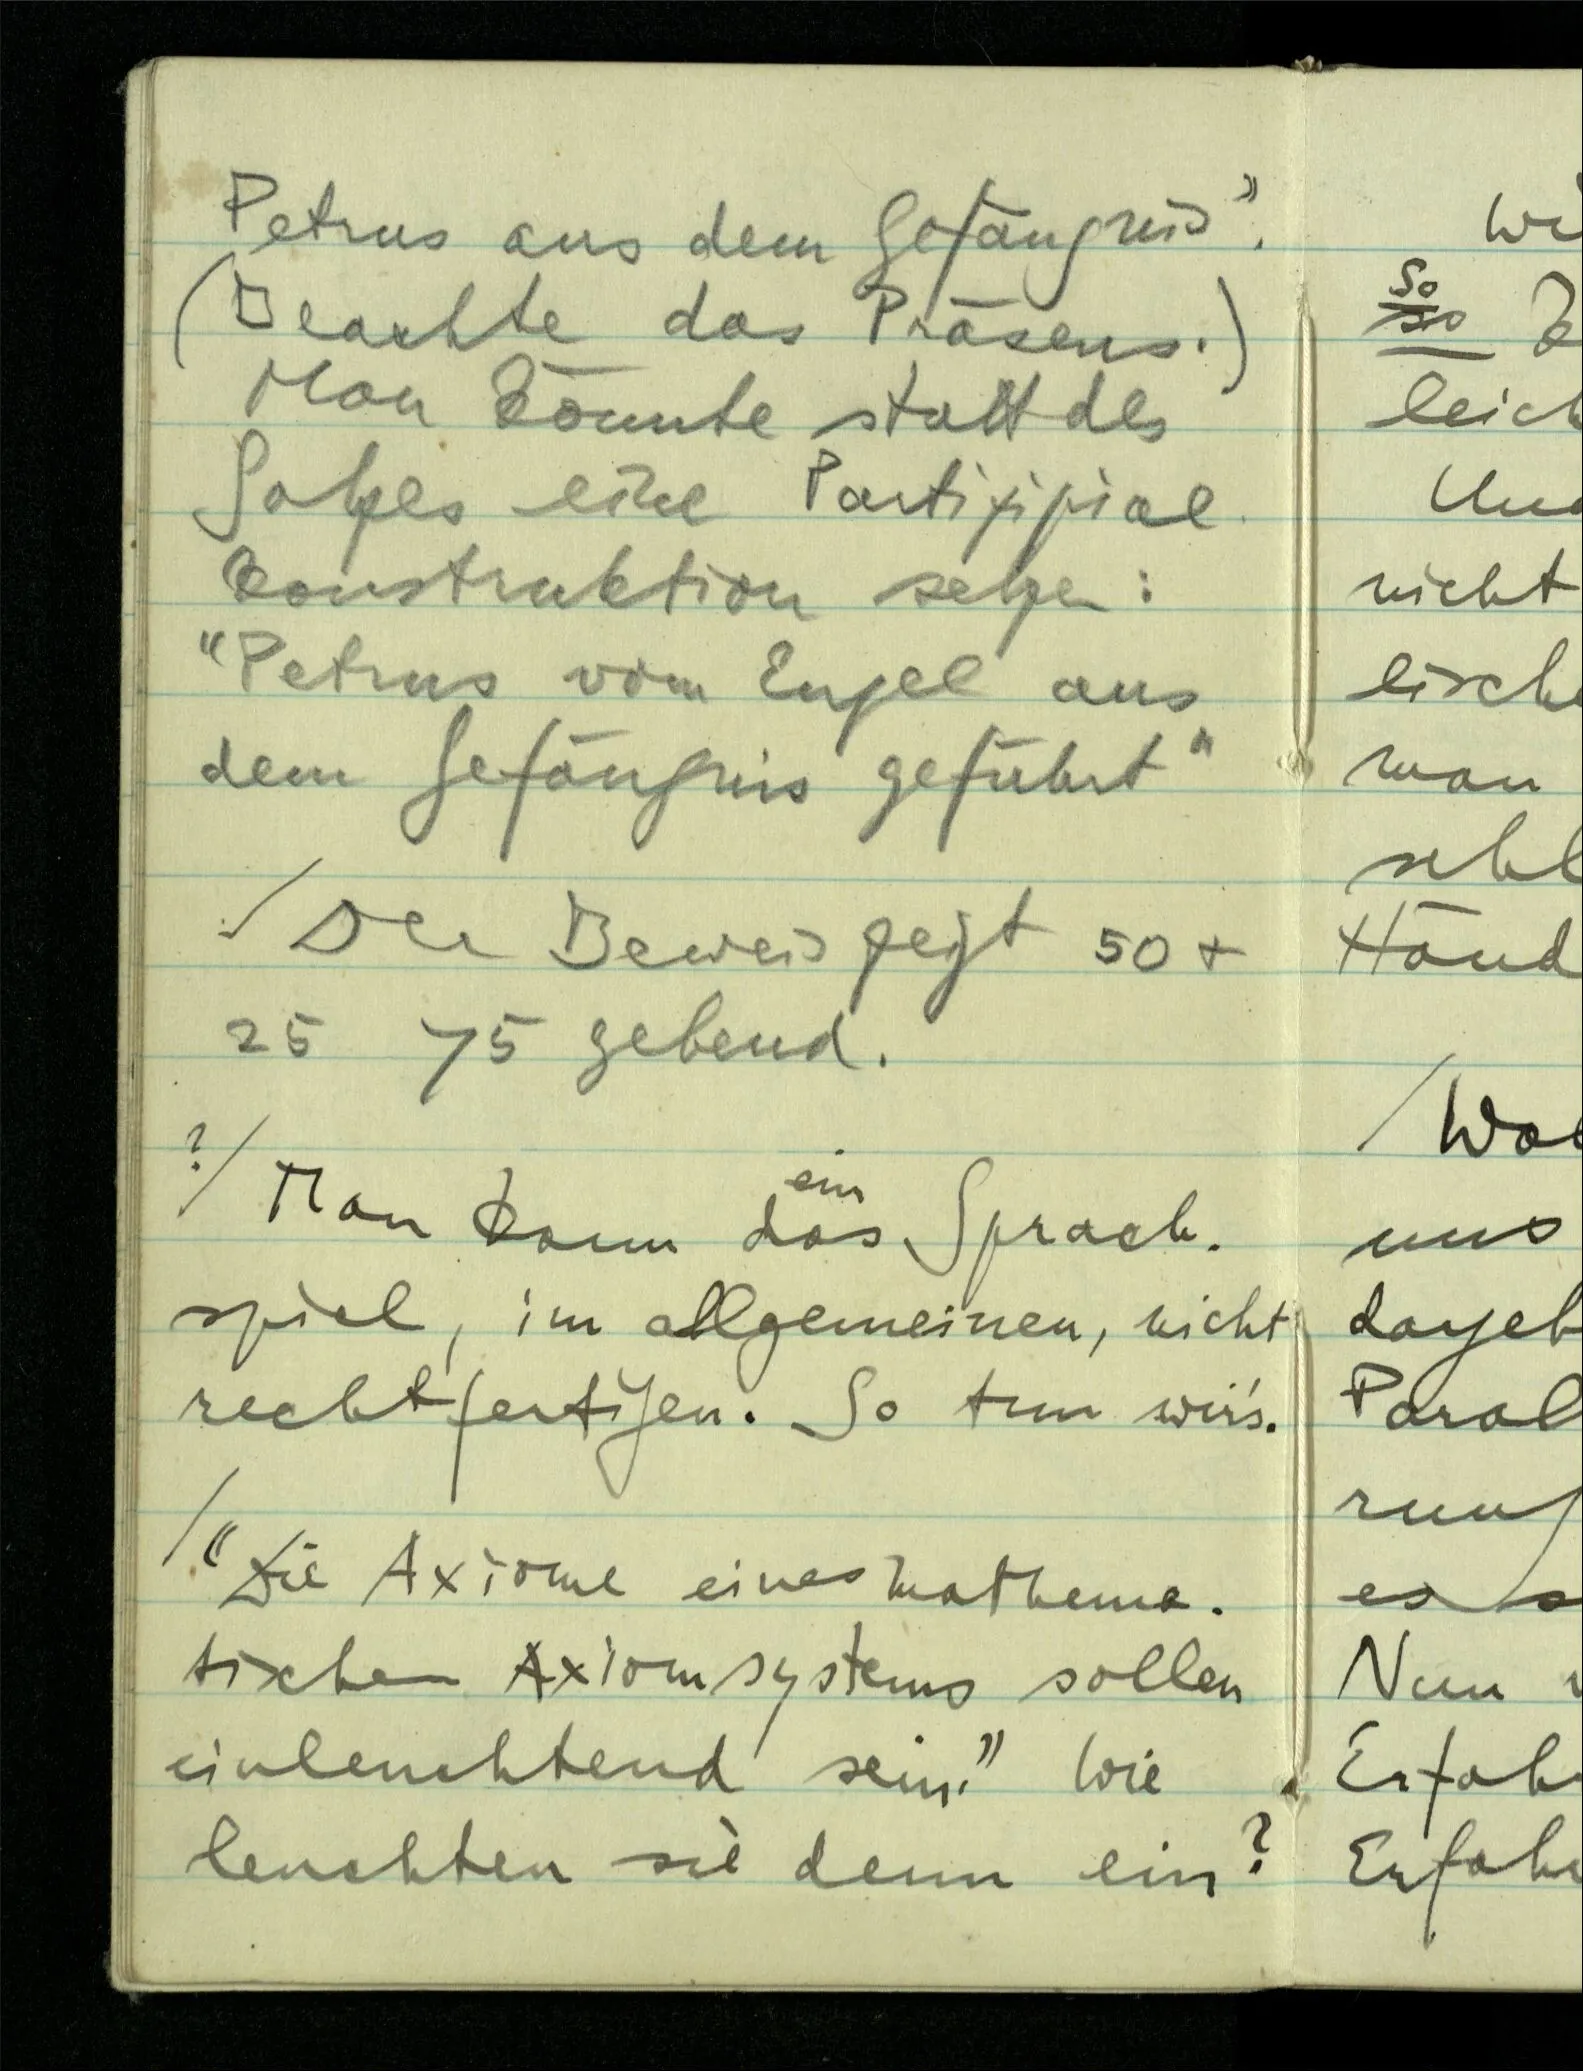 Petrus aus dem Gefängnis”.
(Beachte das Präsens.)
Man könnte statt des
Satzes eine Partizipial
konstruktion setzen:
“Petrus vom Engel aus
dem Gefängnis geführt”
✓/ Der Beweis zeigt 50 +
25 75 gebend.
?/ Man kann das Sprach-
ein
spiel, im allgemeinen, nicht
rechtfertigen. So tun wir's.
/ “Die Axiome eines mathema-
tischen Axiomsystems sollen
einleuchtend sein.” Wie
leuchten sie denn ein?
So
leich
nicht
lische
man
Händ
/ Wa
uns
Paral
rung
es
Nun
Erfah
Erfah